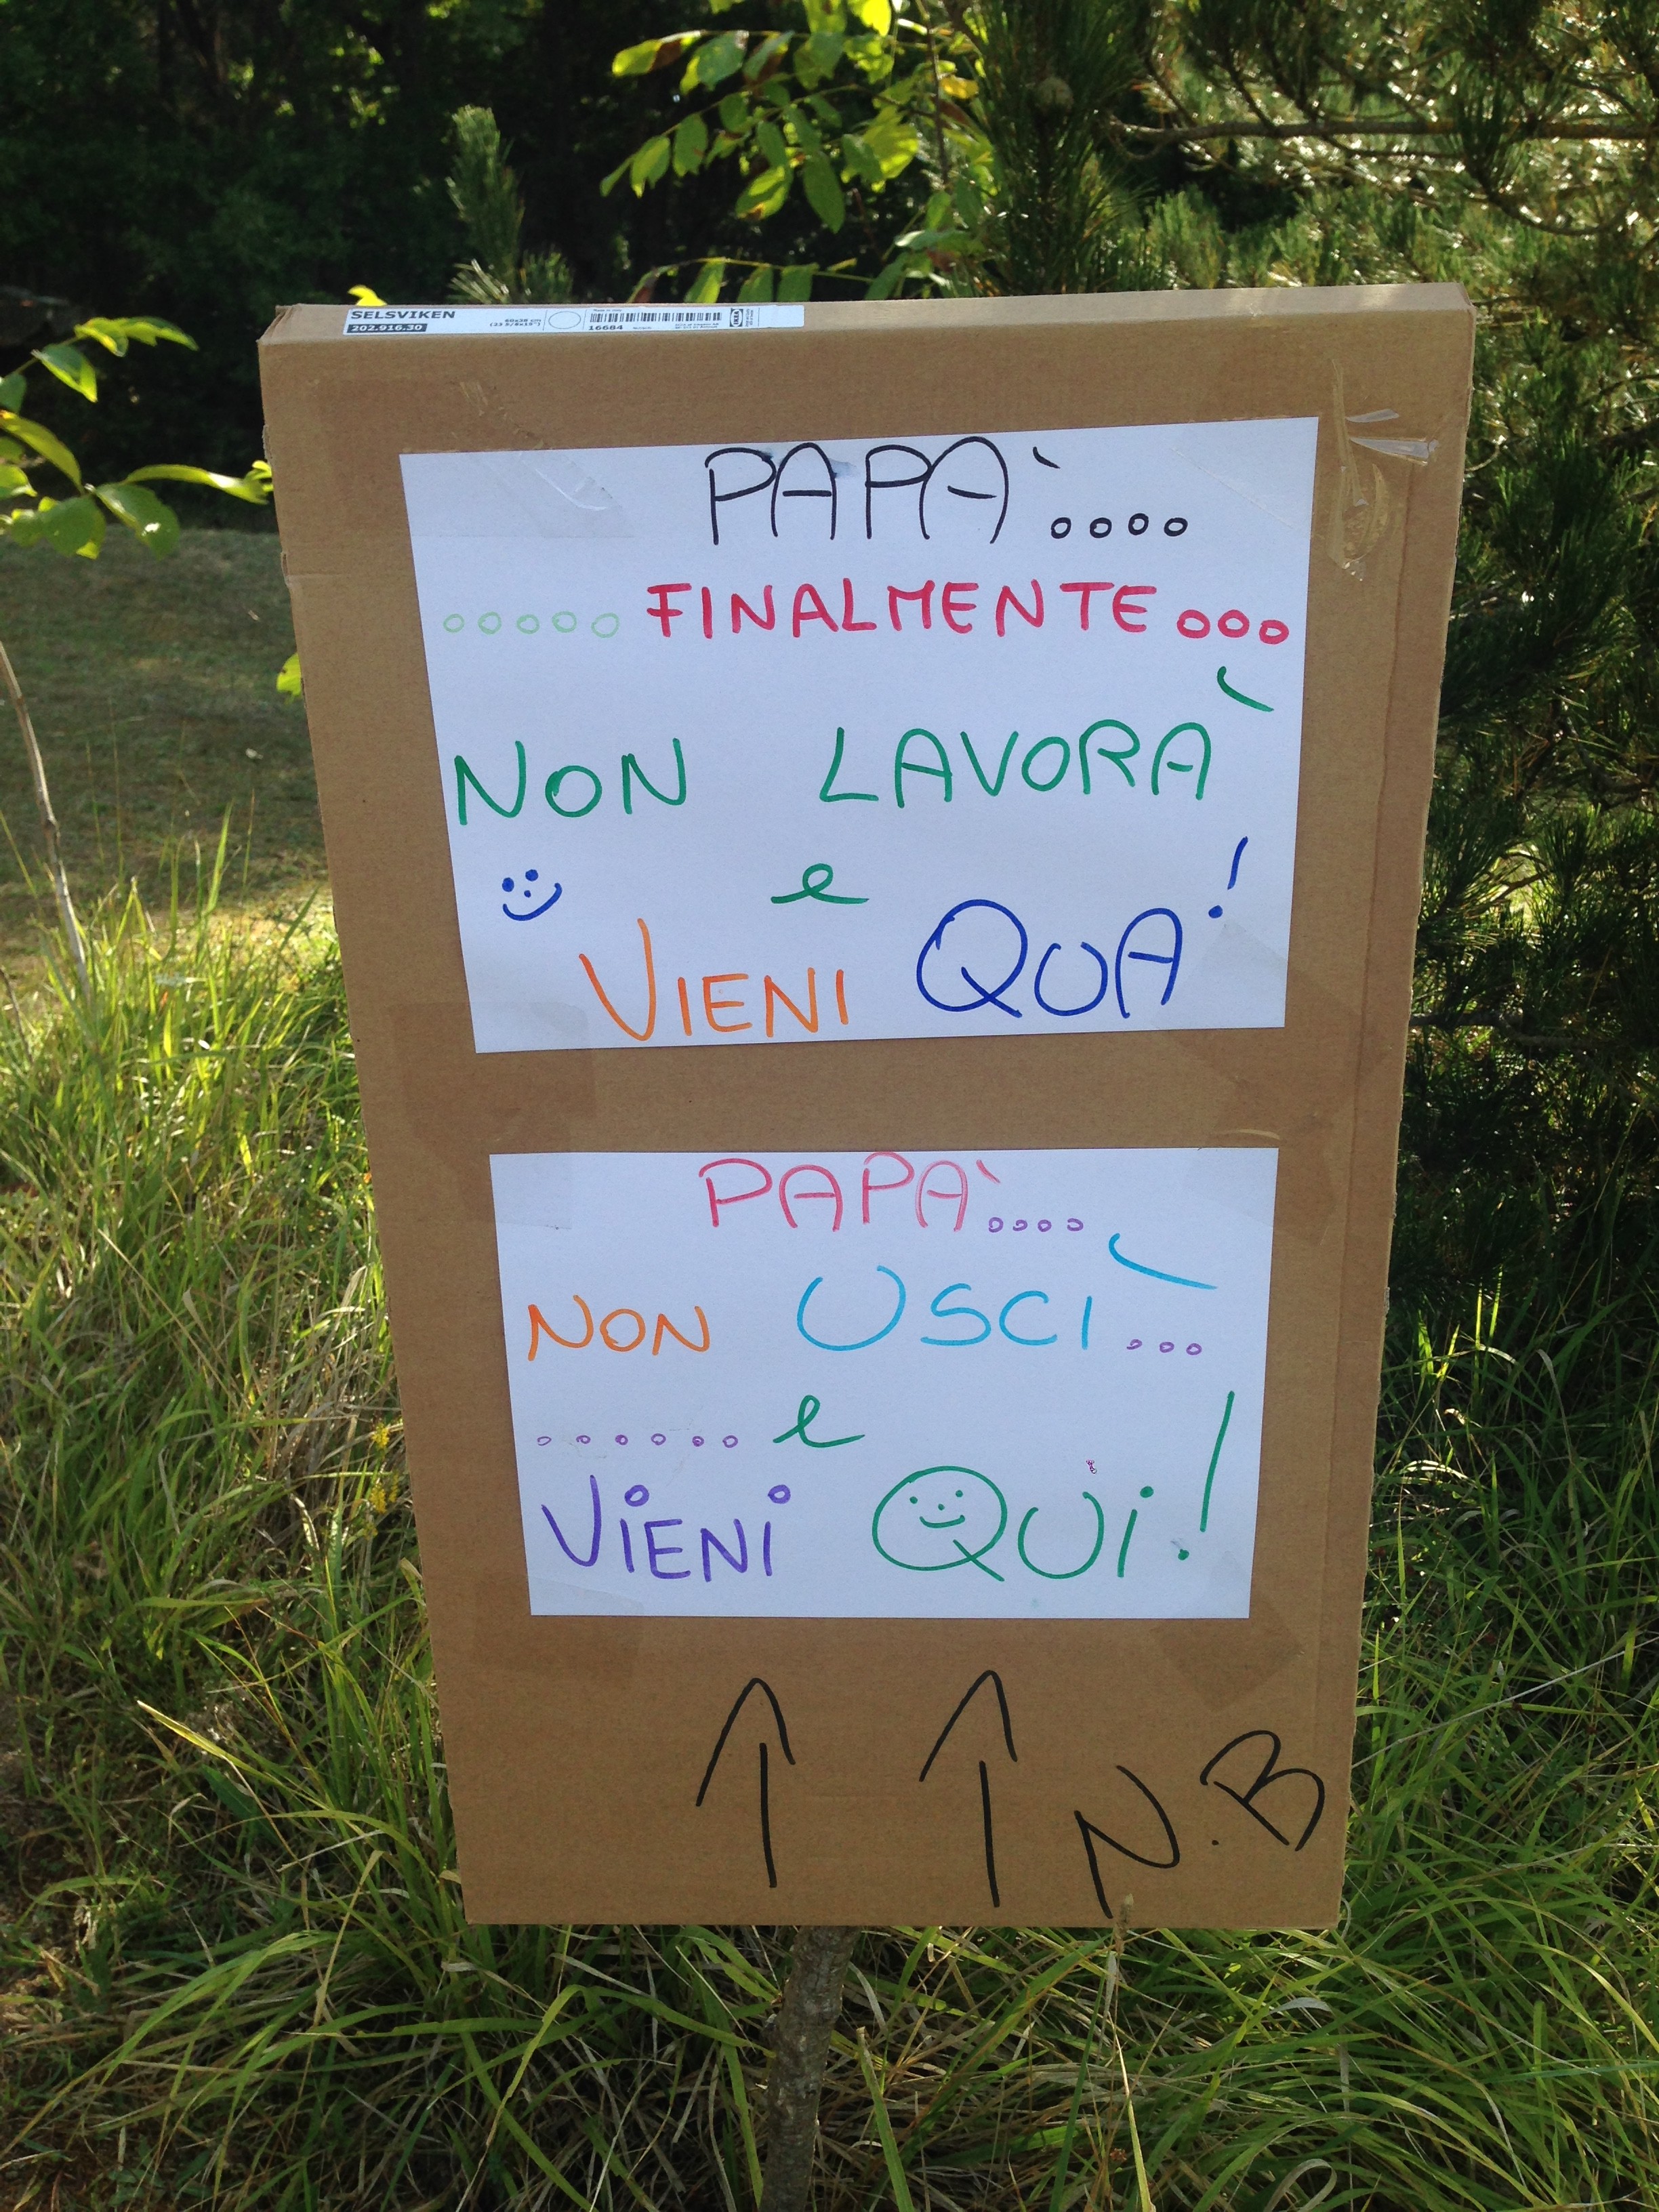 SELSVIKEN
202.916.30
16684
IKEA
PAPÀ....
.....FINALMENTE...
NON LAVORÀ
e
VIENI QUA!
PAPÀ....
NON USCÌ...
......e
VIENI QUi!
N.B